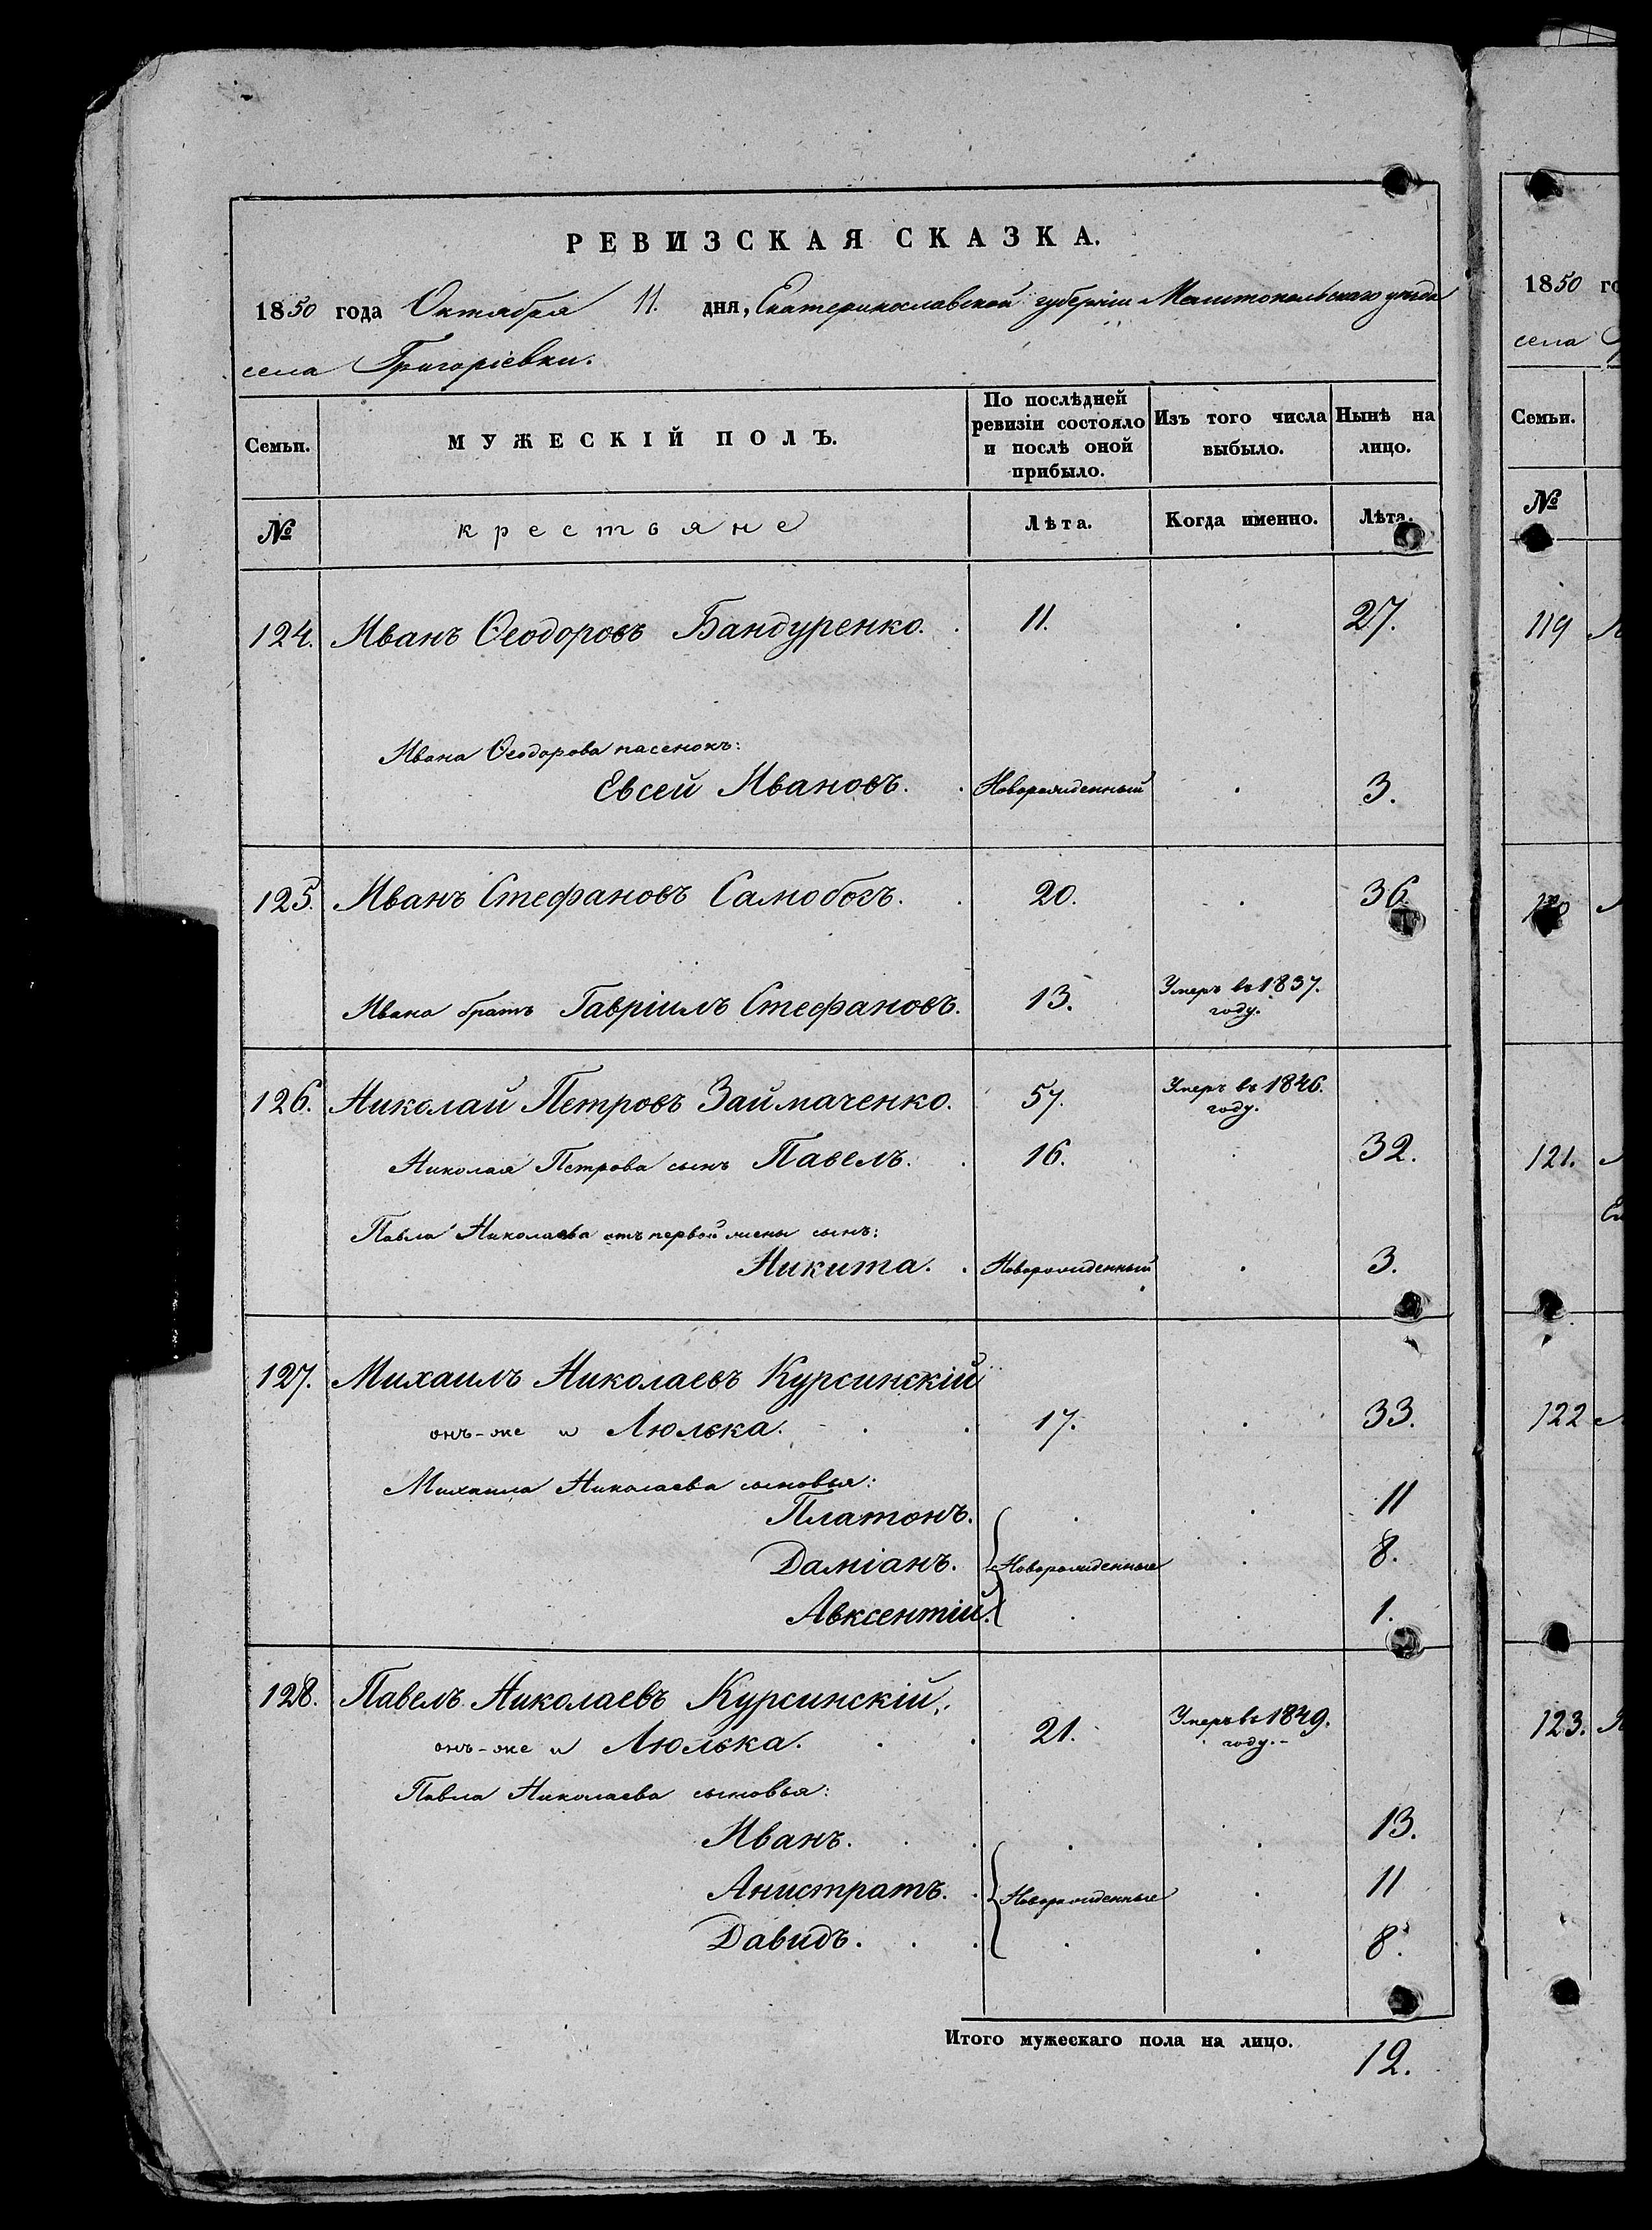 РЕВИЗСКАЯ СКАЗКА.
1850 года Октября 11. дня, Екатеринославской губерніи уѣзда
села Григоріевки.
Семьи.
МУЖЕСКІЙ ПОЛЪ.
По послѣдней ревизіи состояло и послѣ оной прибыло.
Изъ того числа выбыло.
Нынѣ на лицо.
№ крестьяне Лѣта. Когда именно. Лѣта.
124. Иванъ Ѳеодоровъ Бандуренко. 11. 27.
Ивана Ѳеодорова пасенокъ:
Евсей Ивановъ. Новорожденный 3.
125. Иванъ Стефановъ Самобогъ. 20. 36.
Ивана братъ Гавріилъ Стефановъ. 13. Умеръ въ 1837. году.
126. Николай Петровъ Займаченко. 57. Умеръ въ 1846. году.
Николая Петрова сынъ Павелъ. 16. 32.
Павла Николаева отъ первой жены сынъ:
Никита. Новорожденный 3.
127. Михаилъ Николаевъ Курсинскій
онъ-же и Люлька. 17. 33.
Михаила Николаева сыновья:
Платонъ. 11
Даміанъ. Новорожденные 8.
Авксентій. 1.
128. Павелъ Николаевъ Курсинскій,
онъ-же и Люлька. 21. Умеръ въ 1849. году.
Павла Николаева сыновья:
Иванъ. 13.
Анистратъ. Новорожденные 11
Давидъ. 8.
Итого мужескаго пола на лицо. 12.
1850 го
села
Семьи.
№
119
120
121.
122
123.